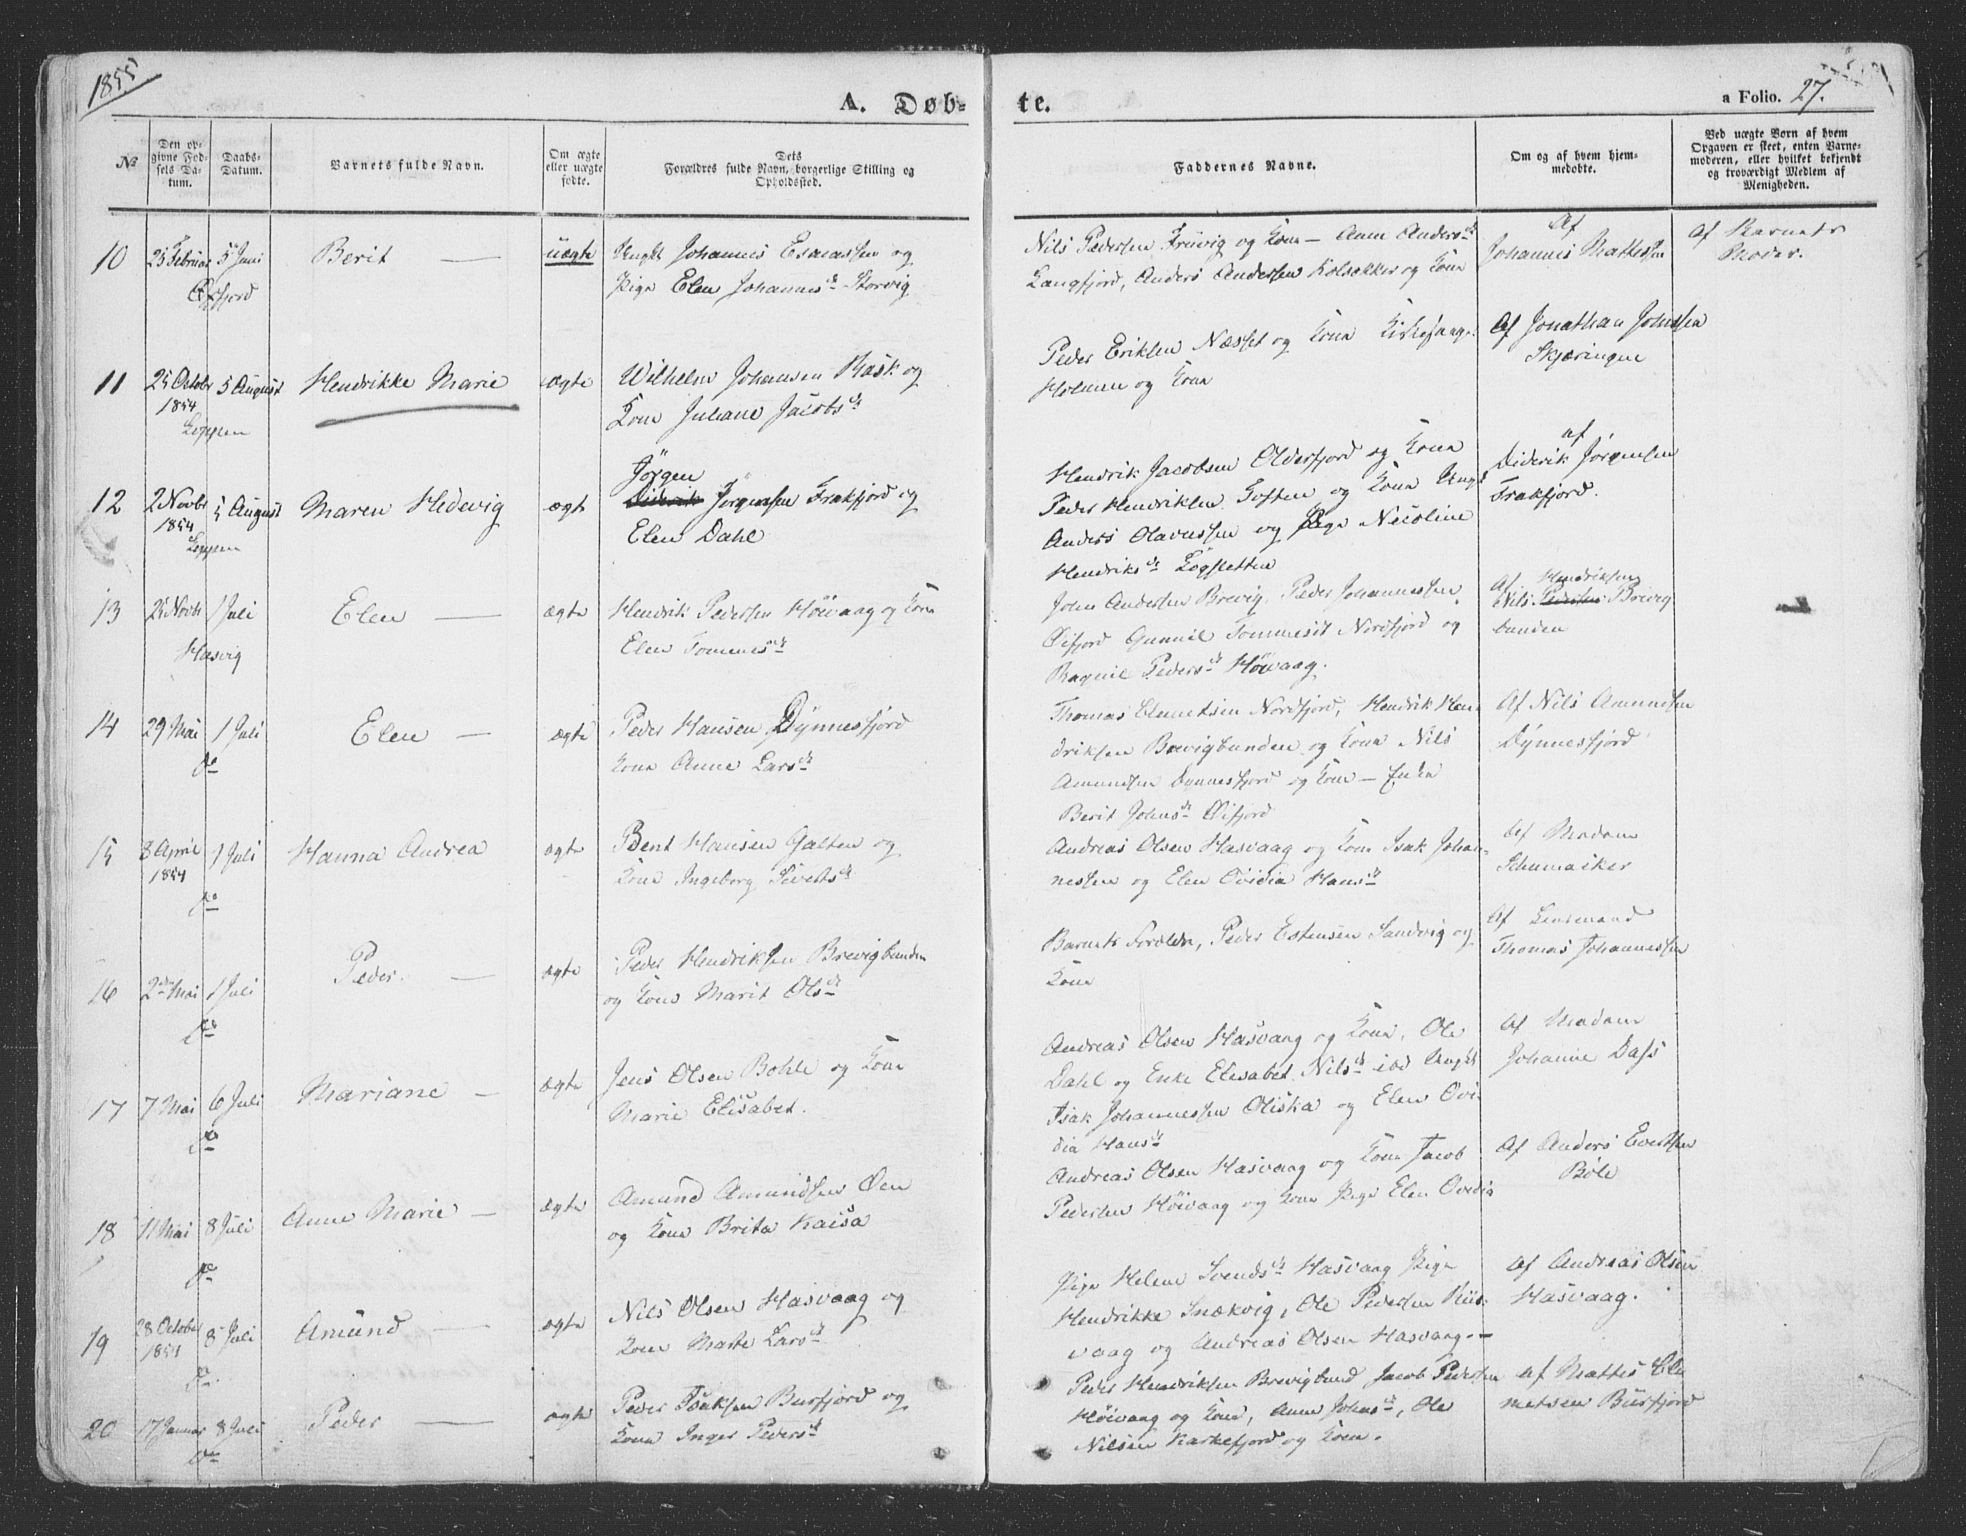 1855
A. Døb-
te.
a Folio. 27.
No
Den op-
givne Fød-
sels Da-
tum.
Daabs-
Datum.
Barnets fulde Navn.
Om ægte
eller uægte
fødte.
Dets
Forældres fulde Navn, borgerlige Stilling og
Opholdssted.
Faddernes Navne.
Om og af hvem hjem-
medøbte.
Ved uægte Børn af hvem
Opgaven er skeet, enten Barne-
moderen, eller hvilket bekjendt
og troværdigt Medlem af
Menigheden.
10 25 Februar 5 Juni Berit — uægte Ungk Johannes Esaiassen og
Øxfjord Pige Elen Johannesdr Storvig
Nils Pedersen Fruvig og Kone — Ane Andersdr
Langfjord, Anders Andersen Kolsakker og Kone
Af
Johannes Mathesen
Af Barnets
Moder.
11 25 Octobr 5 August Hendrikke Marie ægte Wilhelm Johansen Rask og
1854
Loppen
Kone Juliane Jacobsdr
Peder Eriksen Næsset og Kone
Holmen og Kone
Af Jonathan Johnsen
Skjæringen
12 2 Novbr 5 August Maren Hedevig ægte
1854
Loppen
Jørgen
Diderik Jørgensen Frakfjord og
Elen Dahl
Hendrik Jacobsen Olderfjord og Kone
Peder Hendriksen Goften og Kone Ungk
Anders Olaussen og Pige Nicoline
Hendriksdr Løgsletten
af
Diderik Jørgensen
Frakfjord.
13 25 Novbr 1 Juli Elen — ægte Hendrik Pedersen Høivaag og Kone
Hasvig Elen Tommesdr
John Andersen Brevig, Peder Johannessen
Øifjord Gunnil Tommesdr Nordfjord og
Ragnil Pedersdr Høivaag.
Af Hendriksen
Nils Pedersen Brevig
bunden
14 29 Mai 1 Juli Elen — ægte Peder Hansen Dynnesfjord
do Kone Anne Larsdr
Thomas Clemetsen Nordfjord, Hendrik Hen-
driksen Brevigbunden og Kone Nils
Amundsen Dynnesfjord og Kone — Enke
Berit Johnsdr Øifjord
Af Nils Amundsen
Dynnesfjord
15 8 April 1 Juli Hanna Andrea ægte Bent Hansen Galten og
1854
do Kone Ingeborg Sivertsdr
Andreas Olsen Hasvaag og Kone Isak Johan-
nessen og Elen Ovidia Hansdr
Af Madam
Schumacker
16 2den Mai 1 Juli Peder — ægte Peder Hendriksen Brevigbunden
do og Kone Marit Olsdr
Barnets Forældre, Peder Estensen Sandvig og
Kone
Af Lensmand
Thomas Johannessen
17 7 Mai 6 Juli Mariane — ægte Jens Olsen Bohle og Kone
do Marie Elisabet.
Andreas Olsen Hasvaag og Kone, Ole
Dahl og Enke Elisabet Nilsdr ibd Ungk
Isak Johannessen Oliska og Elen Ovi-
dia Hansdr
Af Madam
Johanne Dass
18 11 Mai 8 Juli Anne Marie — ægte Amund Amundsen Øen
do og Kone Brita Kaisa
Andreas Olsen Hasvaag og Kone Jacob
Pedersen Høivaag og Kone Pige Elen Ovidia
Af Anders Evertsen
Bøle
19 28 October 8 Juli Amund — ægte Nils Olsen Hasvaag og
1854
do Kone Marte Larsdr
Pige Helene Svendsdr Hasvaag Pige
Hendrikke Snækvig, Ole Pedersen Riis-
vaag og Andreas Olsen Hasvaag. —
Af Andreas Olsen
Hasvaag.
20 17 Januar 8 Juli Peder — ægte Peder Isaksen Burfjord og
do Kone Inger Pedersdr
Peder Hendriksen Brevigbund Jacob Pedersen
Høivaag og Kone, Anne Johnsdr, Ole
Nilsen Karkefjord og Kone.
Af Mattis Cle
metsen Burfjord